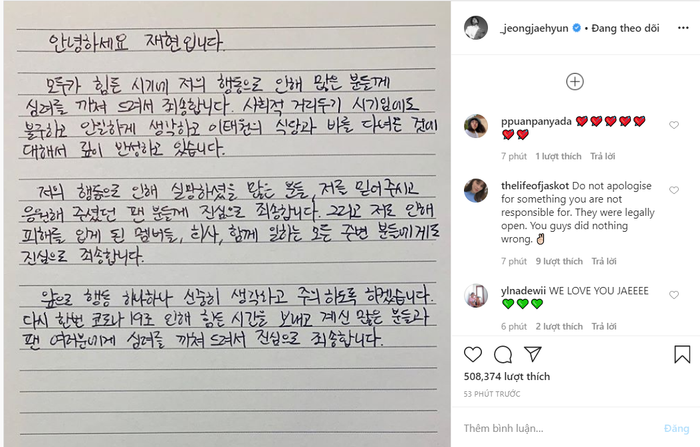 안녕하세요 재현입니다.
모두가 힘든 시기에 저의 행동으로 인해 많은 분들께
심려를 끼쳐 드려서 죄송합니다. 사회적 거리두기 시기임에도
불구하고 안일하게 생각하고 이태원의 식당과 바를 다녀온 것에
대해서 깊이 반성하고 있습니다.
저의 행동으로 인해 실망하셨을 많은 분들, 저를 믿어주시고
응원해 주셨던 팬 분들께 진심으로 죄송합니다. 그리고 저로 인해
피해를 입게 된 멤버들, 회사, 함께 일하는 모든 주변 분들에게도
진심으로 죄송합니다.
앞으로 행동 하나하나 신중히 생각하고 주의하도록 하겠습니다.
다시 한번 코로나19로 인해 힘든 시간을 보내고 계신 많은 분들과
팬 여러분에게 심려를 끼쳐 드려서 진심으로 죄송합니다.
_jeongjaehyun • Đang theo dõi
ppuanpanyada ❤❤❤❤❤
❤❤
7 phút 1 lượt thích Trả lời
thelifeofjaskot Do not apologise
for something you are not
responsible for. They were legally
open. You guys did nothing
wrong. ✌🏻
7 phút 9 lượt thích Trả lời
ylnadewii WE LOVE YOU JAEEEE
💚💚💚
6 phút 2 lượt thích Trả lời
508,374 lượt thích
53 PHÚT TRƯỚC
Thêm bình luận...
Đăng